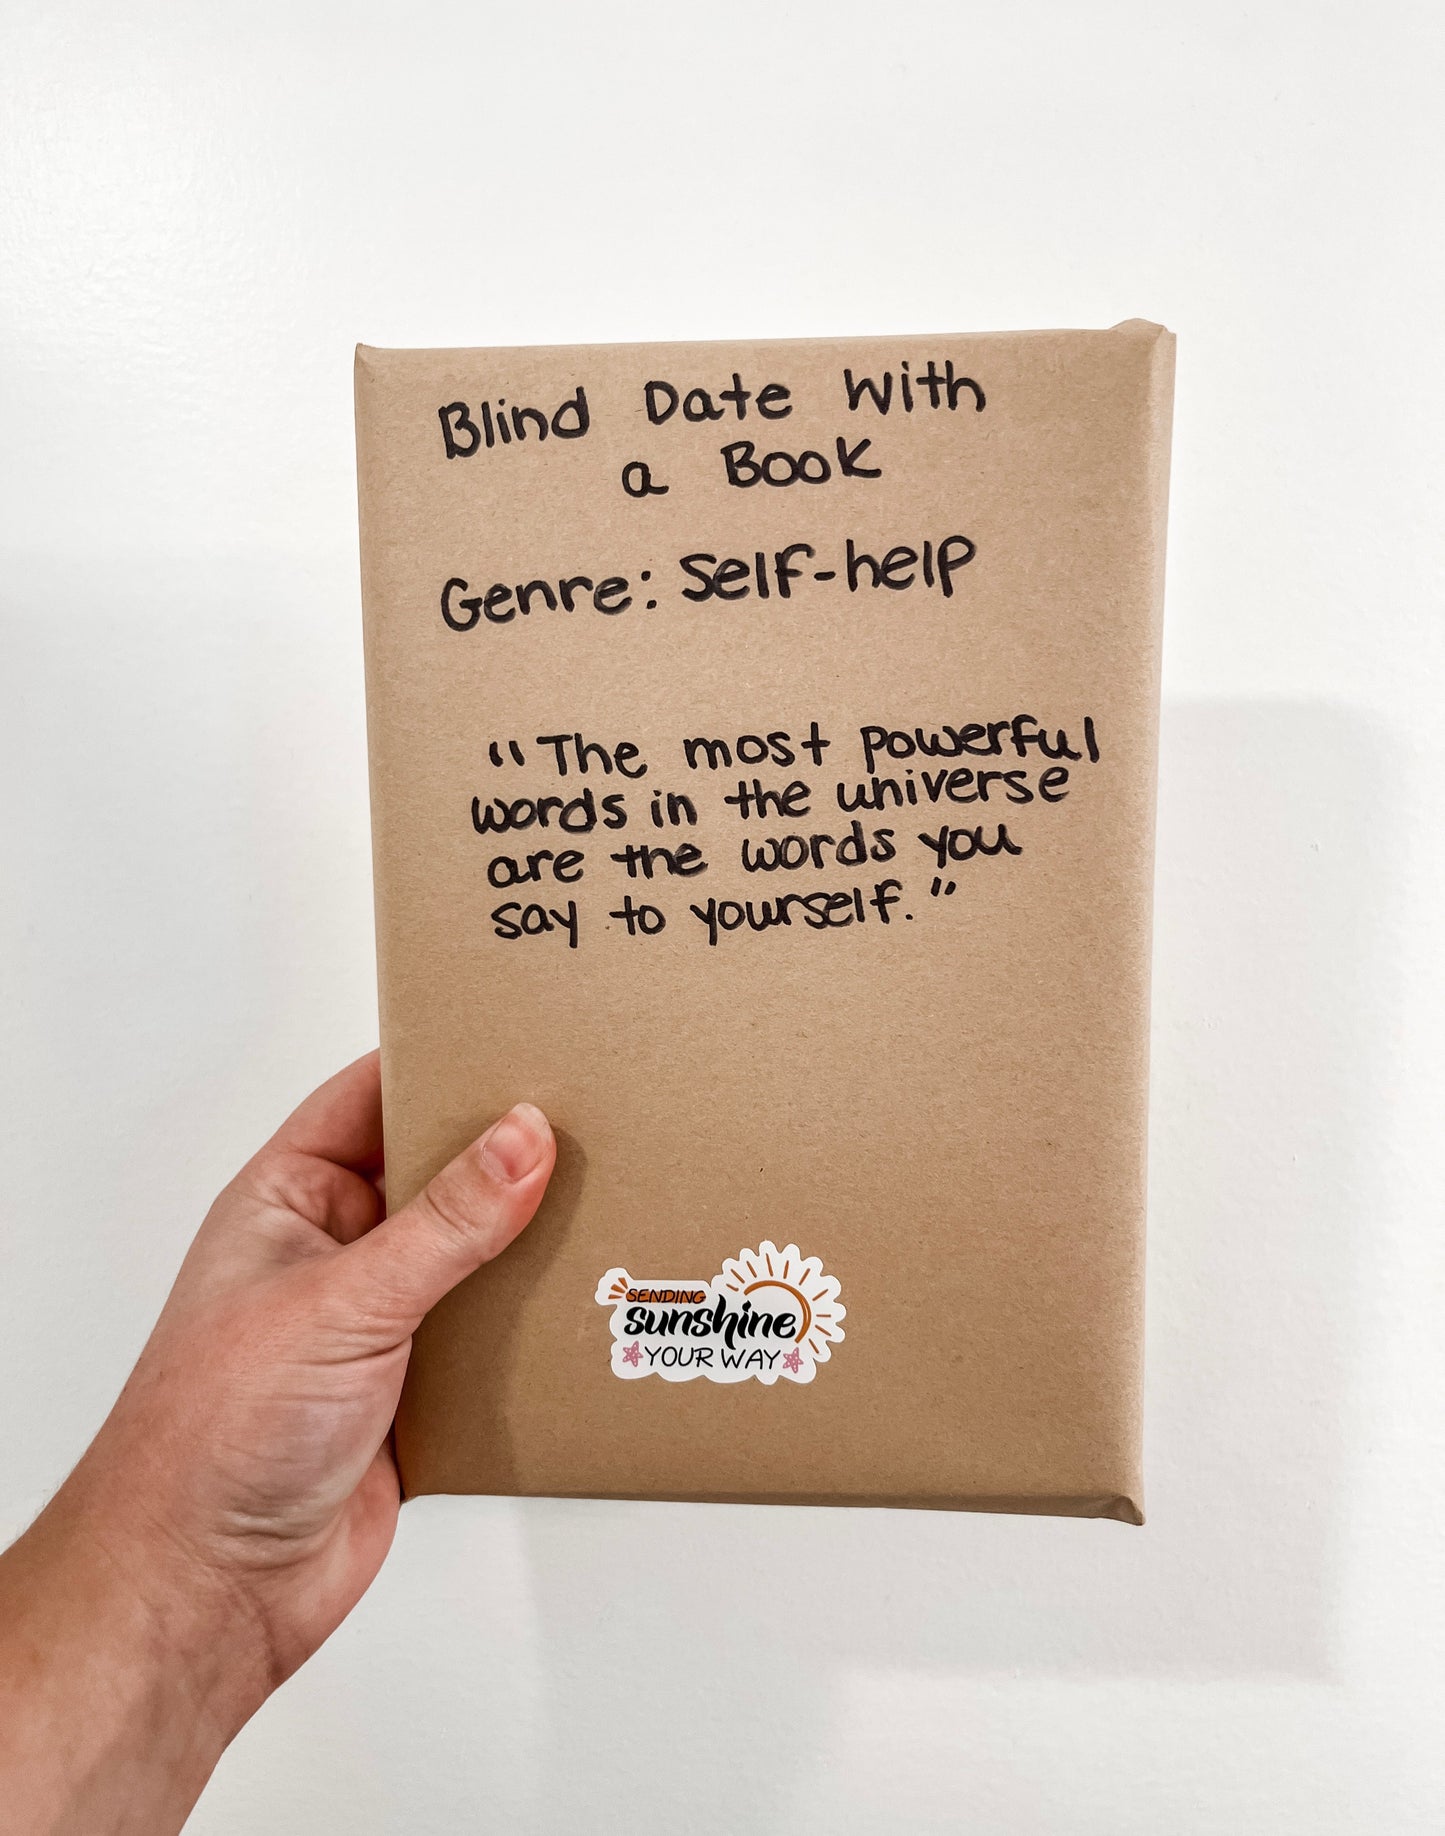 Blind Date With
a Book
Genre: Self-help
"The most powerful
words in the universe
are the words you
say to yourself."
SENDING
sunshine
YOUR WAY